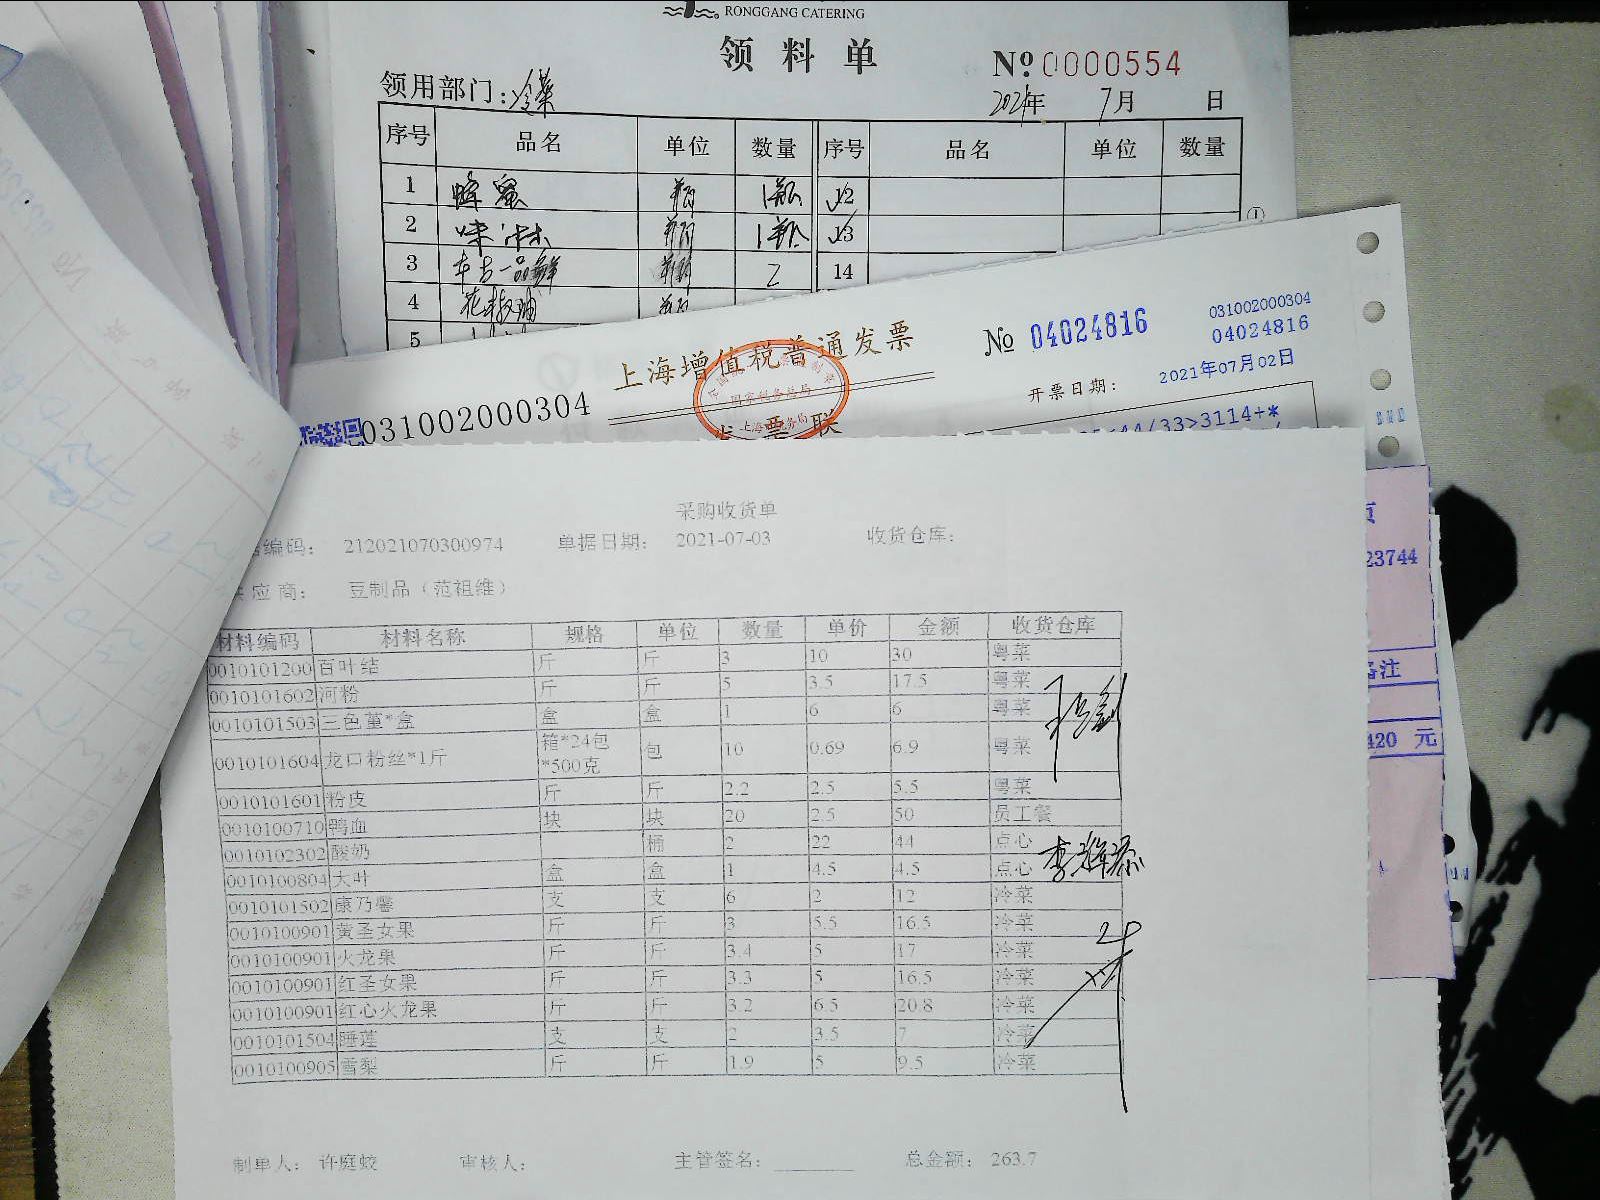 RONGGANG CATERING
领料单
№ 0000554
领用部门:冷菜
2021年 7月 日
序号 品名 单位 数量 序号 品名 单位 数量
1 蜂蜜 瓶 1瓶 12
2 味淋 瓶 1瓶 13
3 一品鲜 瓶 2 14
4 花椒油 瓶
5
上海增值税普通发票
031002000304
№ 04024816
031002000304
04024816
开票日期: 2021年07月02日
发票联
国家税务总局
44/33>3114+*
23744
备注
420 元
采购收货单
编码: 212021070300974 单据日期: 2021-07-03 收货仓库:
应商: 豆制品(范祖维)
材料编码 材料名称 规格 单位 数量 单价 金额 收货仓库
0010101200 百叶结 斤 斤 3 10 30 粤菜
0010101602 河粉 斤 斤 5 3.5 17.5 粤菜
0010101503 三色堇*盒 盒 盒 1 6 6 粤菜
0010101604 龙口粉丝*1斤 箱*24包*500克 包 10 0.69 6.9 粤菜
0010101601 粉皮 斤 斤 2.2 2.5 5.5 粤菜
0010100710 鸭血 块 块 20 2.5 50 员工餐
0010102302 酸奶 桶 2 22 44 点心
0010100804 大叶 盒 盒 1 4.5 4.5 点心
0010101502 康乃馨 支 支 6 2 12 冷菜
0010100901 黄圣女果 斤 斤 3 5.5 16.5 冷菜
0010100901 火龙果 斤 斤 3.4 5 17 冷菜
0010100901 红圣女果 斤 斤 3.3 5 16.5 冷菜
0010100901 红心火龙果 斤 斤 3.2 6.5 20.8 冷菜
0010101504 睡莲 支 支 2 3.5 7 冷菜
0010100905 雪梨 斤 斤 1.9 5 9.5 冷菜
制单人: 许庭蛟 审核人: 主管签名: 总金额: 263.7